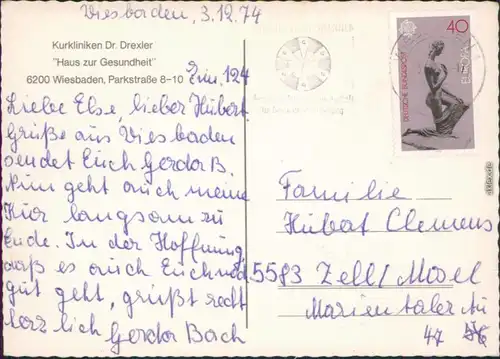 Wiesbaden, 3.12.74
Kurkliniken Dr. Drexler
"Haus zur Gesundheit"
6200 Wiesbaden, Parkstraße 8-10
Zim. 124
Liebe Else, lieber Hubert
Grüße aus Wiesbaden
sendet Euch Gerda B.
Nun geht auch meine
Kur langsam zu
Ende. In der Hoffnung,
daß es auch Euch
gut geht, grüßt recht
herzlich Gerda Bach
40
DEUTSCHE BUNDESPOST
Familie
Hubert Clemens
5583 Zell/Mosel
Marientaler Au
47